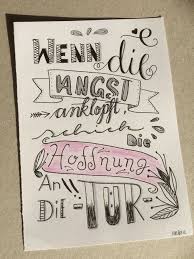 WENN die
ANGST
anklopft,
schick Die
Hoffnung
An
Die TÜR·